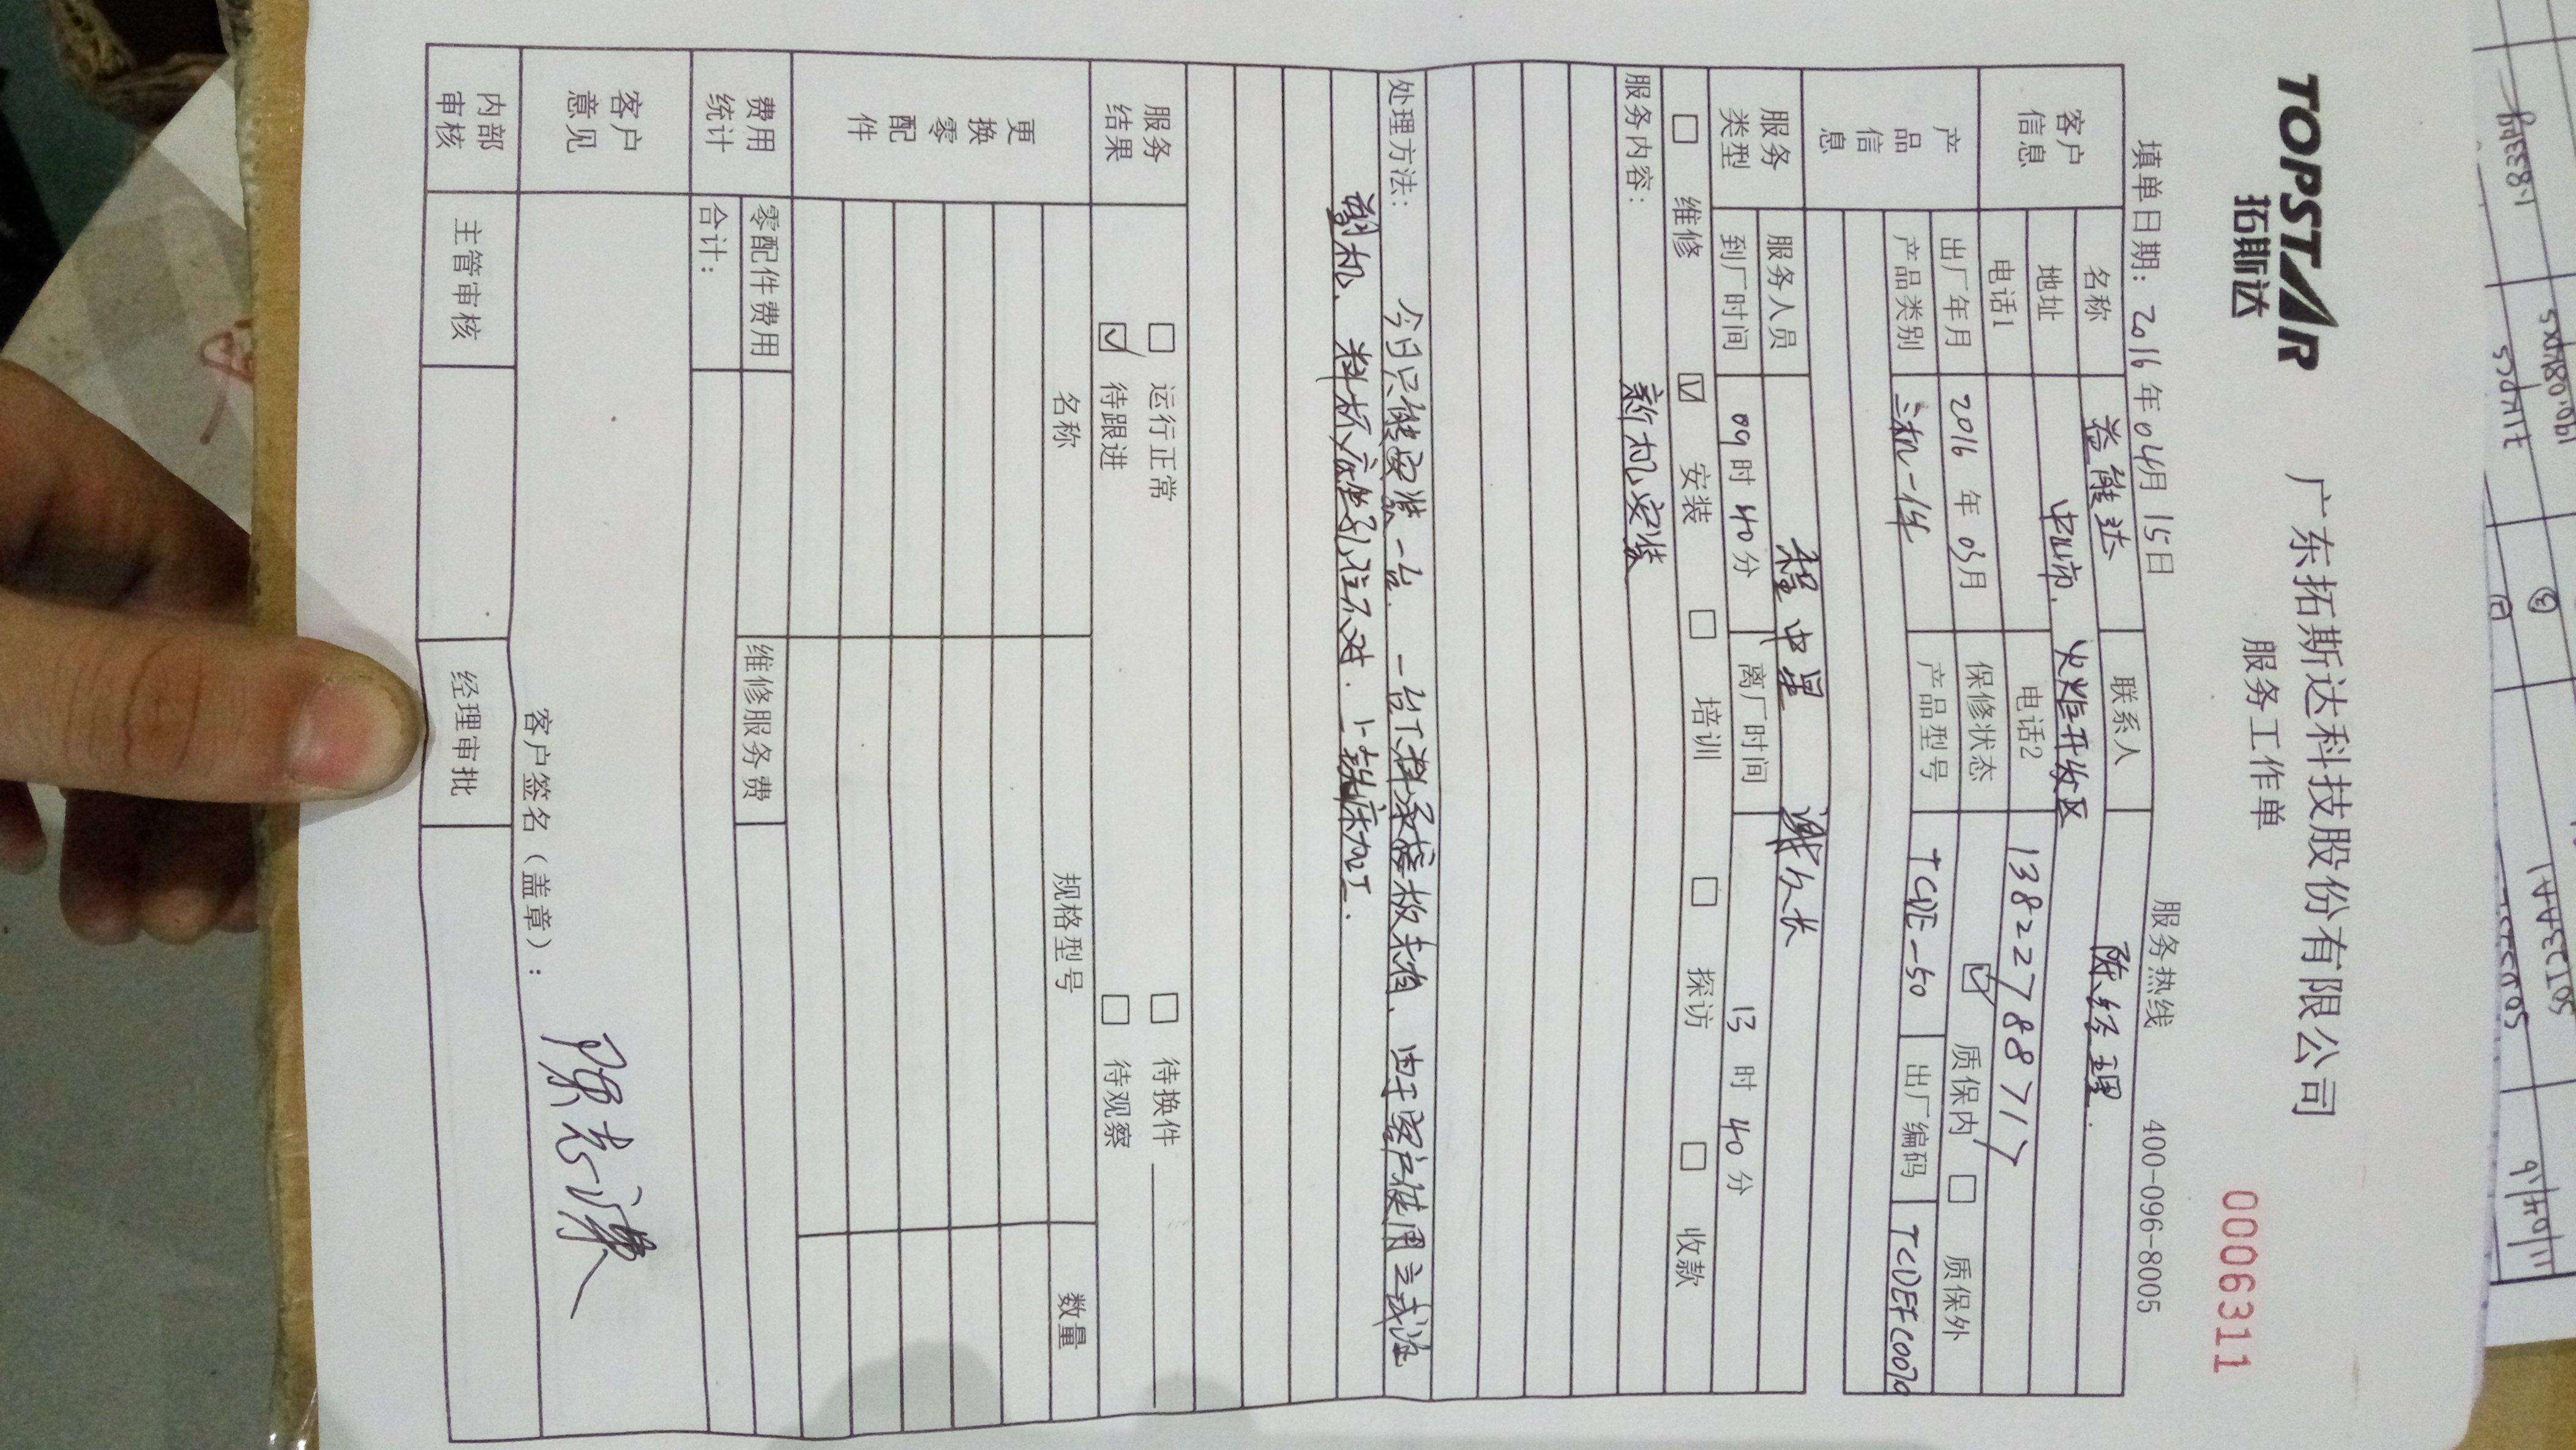 TOPSTAR
拓斯达
广东拓斯达科技股份有限公司
服务工作单
0006311
填单日期: 2016 年 04月 15日 服务热线 400-096-8005
客户信息 名称 益 达 联系人 陈经理.
地址 中山市. 火炬开发区
电话1 电话2 13822788717
产品信息 出厂年月 2016 年 03月 保修状态 ☑ 质保内 □ 质保外
产品类别 三机一体 产品型号 TCDE-50 出厂编码
服务类型 服务人员 程中星 谢
到厂时间 09 时 40 分 离厂时间 13 时 40 分
□ 维修 ☑ 安装 □ 培训 □ 探访 □ 收款
服务内容: 新机安装
处理方法: 今日只能安装一台. 一台下料 接板未有、由于客户使用立式注
塑机、料杯 座 孔位不对. 上铣床加工.
服务结果 □ 运行正常 □ 待换件
☑ 待跟进 □ 待观察
更换零配件 名称 规格型号 数量
费用统计 零配件费用 维修服务费
合计:
客户意见
客户签名（盖章）:
内部审核 主管审核 经理审批